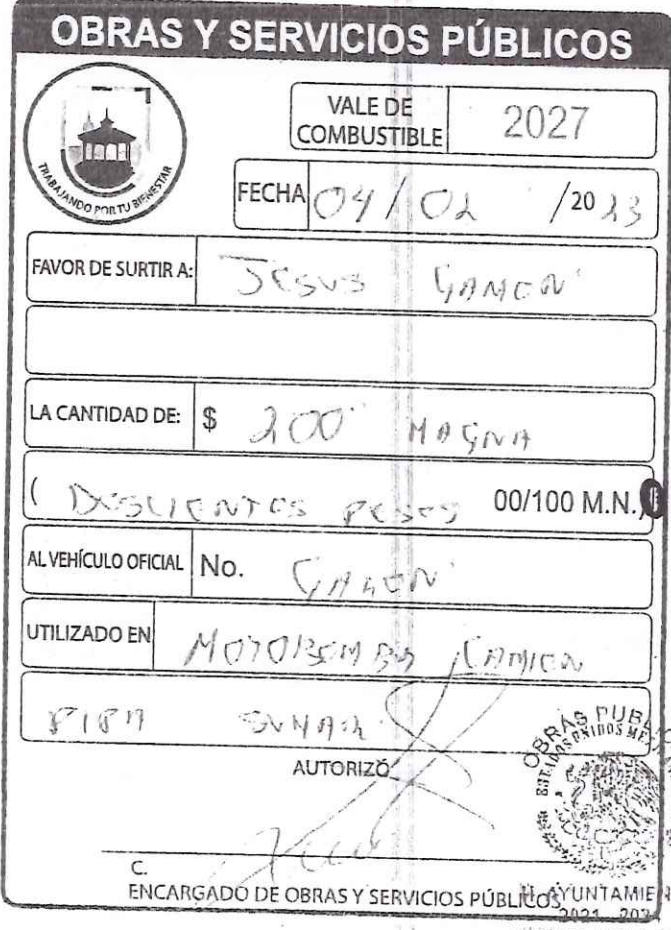 OBRAS Y SERVICIOS PÚBLICOS
TRABAJANDO POR TU BIENESTAR
VALE DE COMBUSTIBLE 2027
FECHA 04/02/2023
FAVOR DE SURTIR A: JESUS GAMEN
LA CANTIDAD DE: $ 200 MAGNA
( DOSCIENTOS PESOS 00/100 M.N.)
AL VEHÍCULO OFICIAL No. GAMEN
UTILIZADO EN MOTOBOMBA CAMION
PIPA
AUTORIZÓ
OBRAS PUBL
ESTADOS UNIDOS ME
C.
ENCARGADO DE OBRAS Y SERVICIOS PÚBLICOS
H. AYUNTAMIEN
2021 - 2024